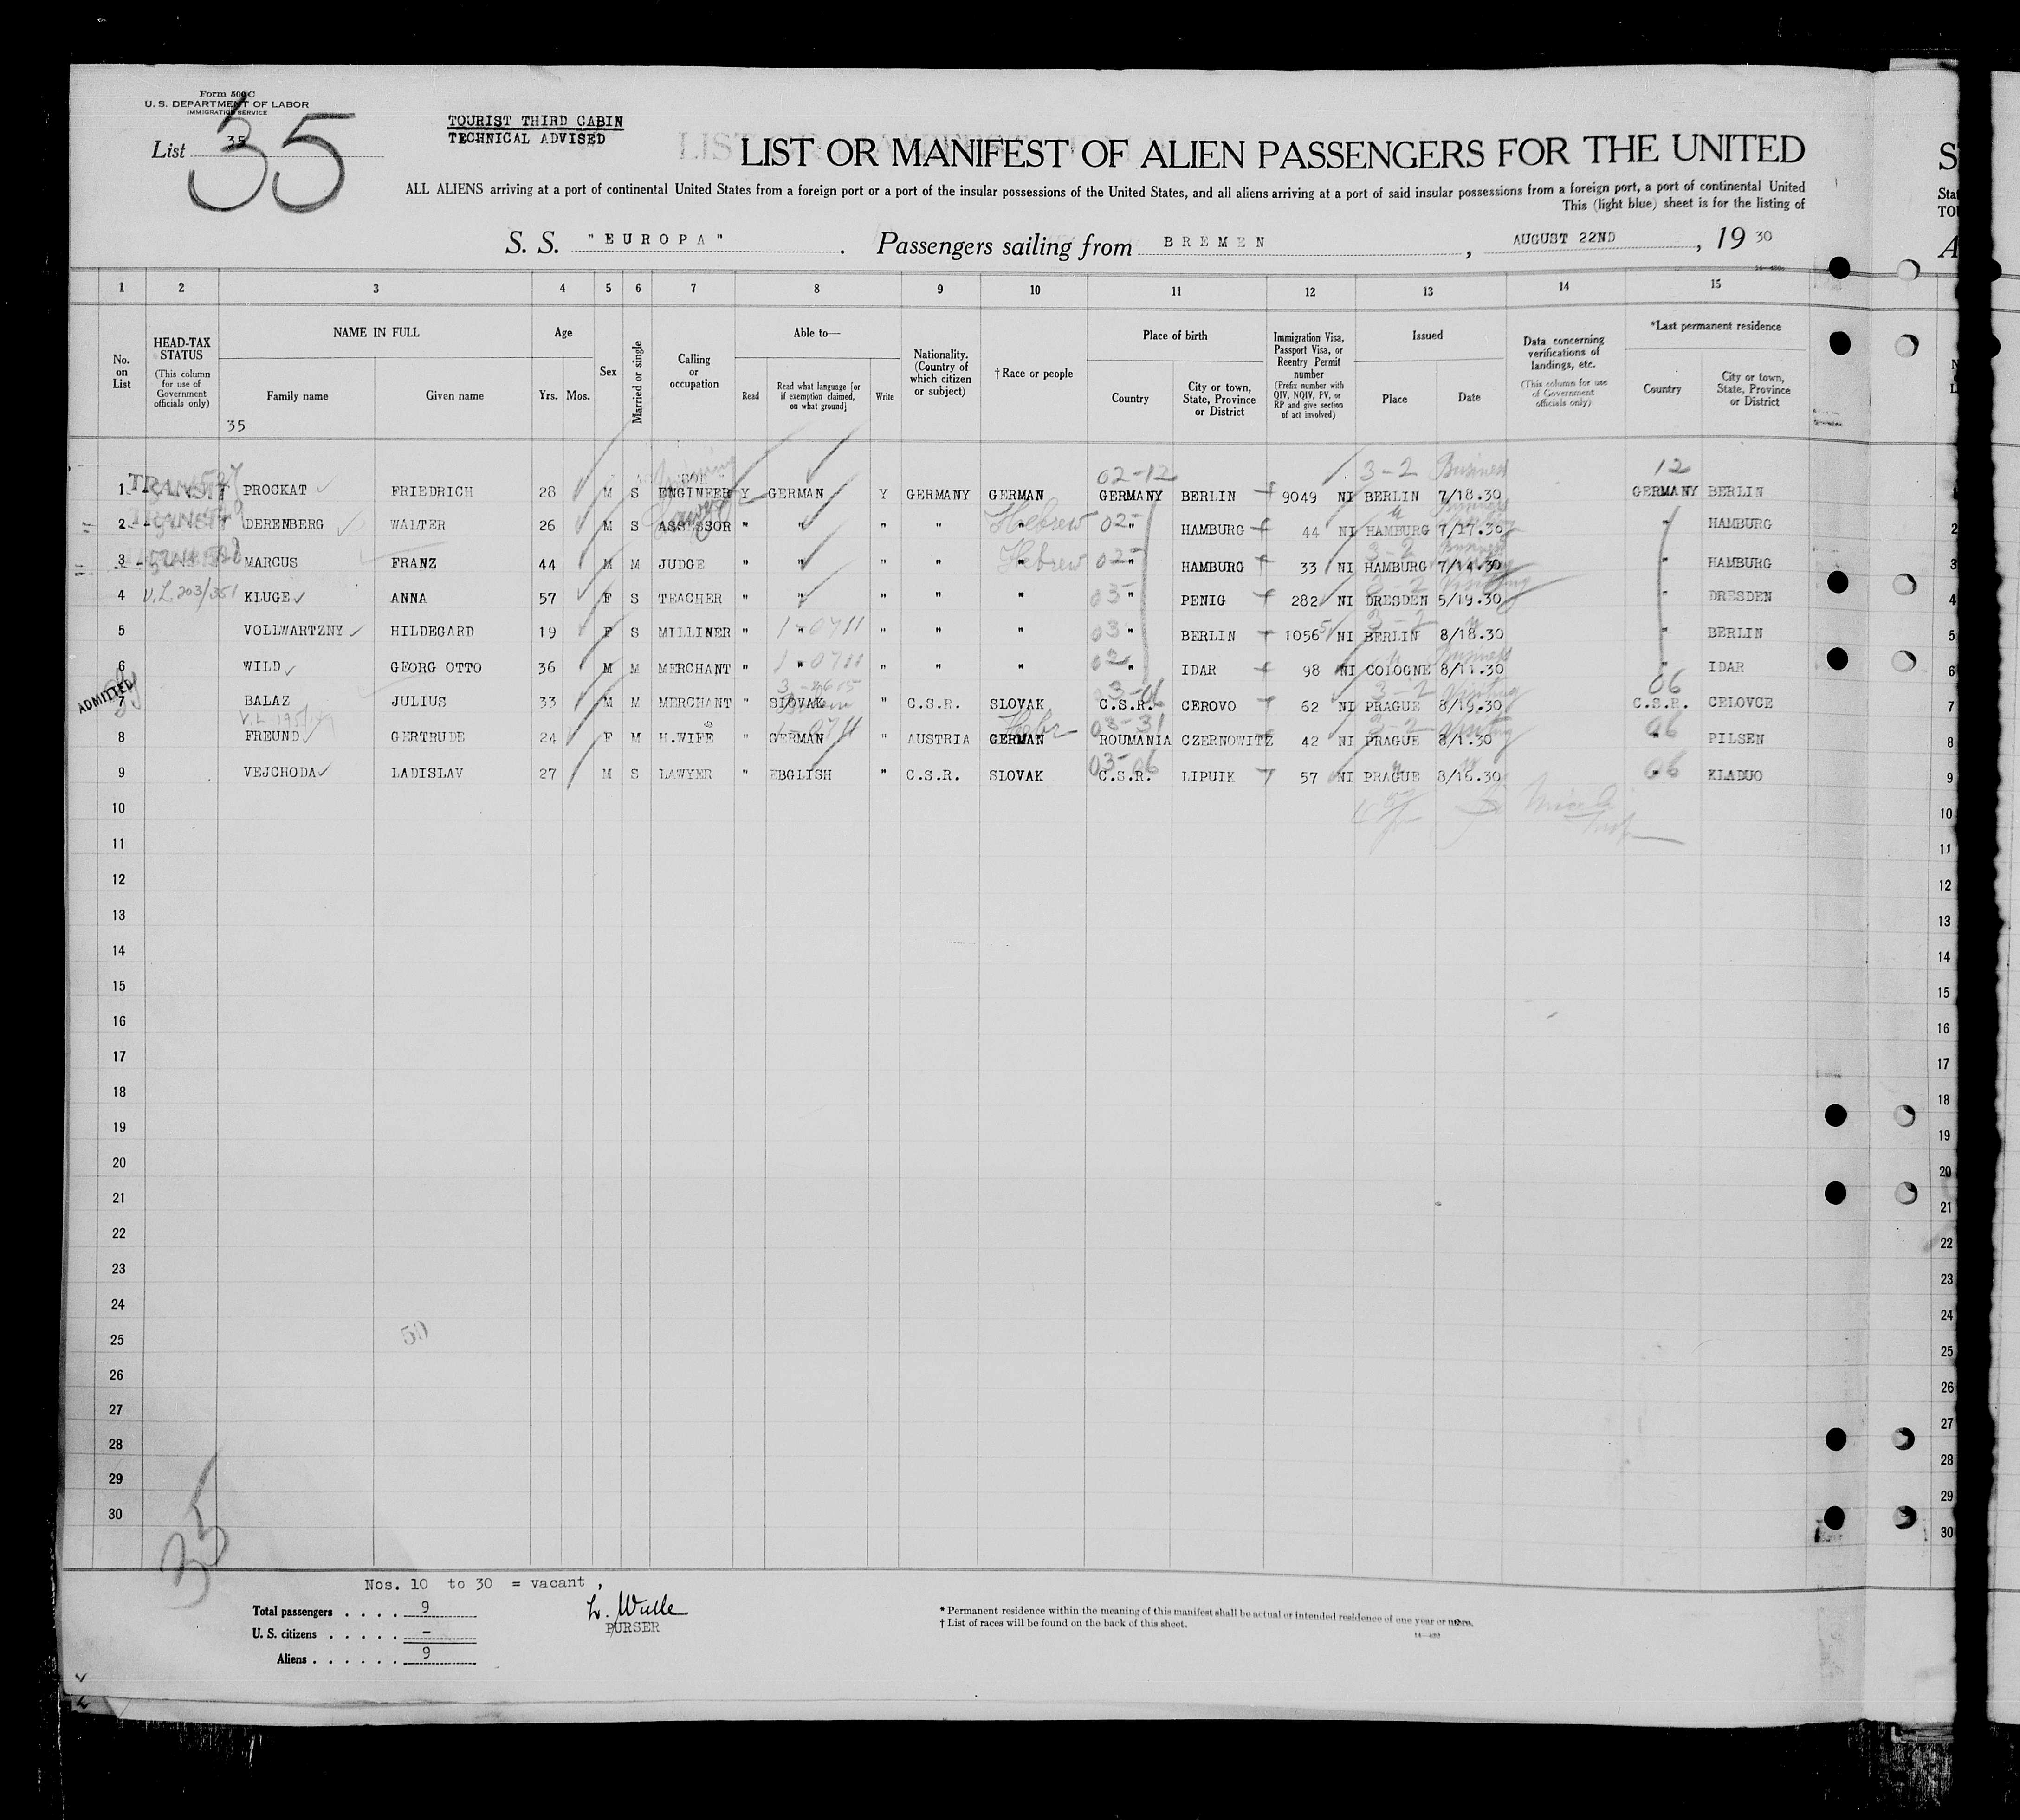 Form 500 C
U. S. DEPARTMENT OF LABOR
IMMIGRATION SERVICE
List 35
35
TOURIST THIRD CABIN
TECHNICAL ADVISED
LIST OR MANIFEST OF ALIEN PASSENGERS FOR THE UNITED
ALL ALIENS arriving at a port of continental United States from a foreign port or a port of the insular possessions of the United States, and all aliens arriving at a port of said insular possessions from a foreign port, a port of continental United
This (light blue) sheet is for the listing of
S. S. "EUROPA". Passengers sailing from BREMEN, AUGUST 22ND, 19 30
1 2 3 4 5 6 7 8 9 10 11 12 13 14 15
No. on List
HEAD-TAX STATUS (This column for use of Government officials only)
NAME IN FULL Family name Given name
Age Yrs. Mos.
Sex
Married or single
Calling or occupation
Able to— Read Read what language [or if exemption claimed, on what ground] Write
Nationality. (Country of which citizen or subject)
†Race or people
Place of birth Country City or town, State, Province or District
Immigration Visa, Passport Visa, or Reentry Permit number (Prefix number with QIV, NQIV, PV, or RP and give section of act involved)
Issued Place Date
Data concerning verifications of landings, etc. (This column for use of Government officials only)
*Last permanent residence Country City or town, State, Province or District
35
02-12 3-2 Business 12
1 TRANSIT PROCKAT FRIEDRICH 28 M S ENGINEER Y GERMAN Y GERMANY GERMAN GERMANY BERLIN 9049 NI BERLIN 7/18.30 GERMANY BERLIN
2 TRANSIT DERENBERG WALTER 26 M S ASSESSOR Lawyer " " " " " Hebrew 02- " HAMBURG 44 NI HAMBURG 7/17.30 " HAMBURG 2
3 MARCUS FRANZ 44 M M JUDGE " " " " " Hebrew 02- " HAMBURG 33 NI HAMBURG 7/14.30 " HAMBURG 3
4 V.L.203/351 KLUGE ANNA 57 F S TEACHER " " " " " 03- " PENIG 282 NI DRESDEN 5/19.30 " DRESDEN 4
5 VOLLWARTZNY HILDEGARD 19 F S MILLINER " " " " " 03- " BERLIN 10565 NI BERLIN 8/18.30 " BERLIN 5
6 WILD GEORG OTTO 36 M M MERCHANT " " " " " 02- " IDAR 98 NI COLOGNE 8/11.30 " IDAR 6
ADMITTED
7 BALAZ JULIUS 33 M M MERCHANT " SLOVAK " C.S.R. SLOVAK 03-06 C.S.R. CEROVO 62 NI PRAGUE 8/19.30 06 C.S.R. CELOVCE 7
8 FREUND GERTRUDE 24 F M H.WIFE " GERMAN " AUSTRIA GERMAN Hebr 03-31 ROUMANIA CZERNOWITZ 42 NI PRAGUE 8/1.30 06 " PILSEN 8
9 VEJCHODA LADISLAV 27 M S LAWYER " EBGLISH " C.S.R. SLOVAK 03-06 C.S.R. LIPUIK 57 NI PRAGUE 8/16.30 06 " KLADUO 9
10 10
11 11
12 12
13 13
14 14
15 15
16 16
17 17
18 18
19 19
20 20
21 21
22 22
23 23
24 24
50
25 25
26 26
27 27
28 28
29 29
30 30
35
Nos. 10 to 30 = vacant,
Total passengers . . . . 9
U. S. citizens . . . . . –
Aliens . . . . . . 9
PURSER
* Permanent residence within the meaning of this manifest shall be actual or intended residence of one year or more.
† List of races will be found on the back of this sheet.